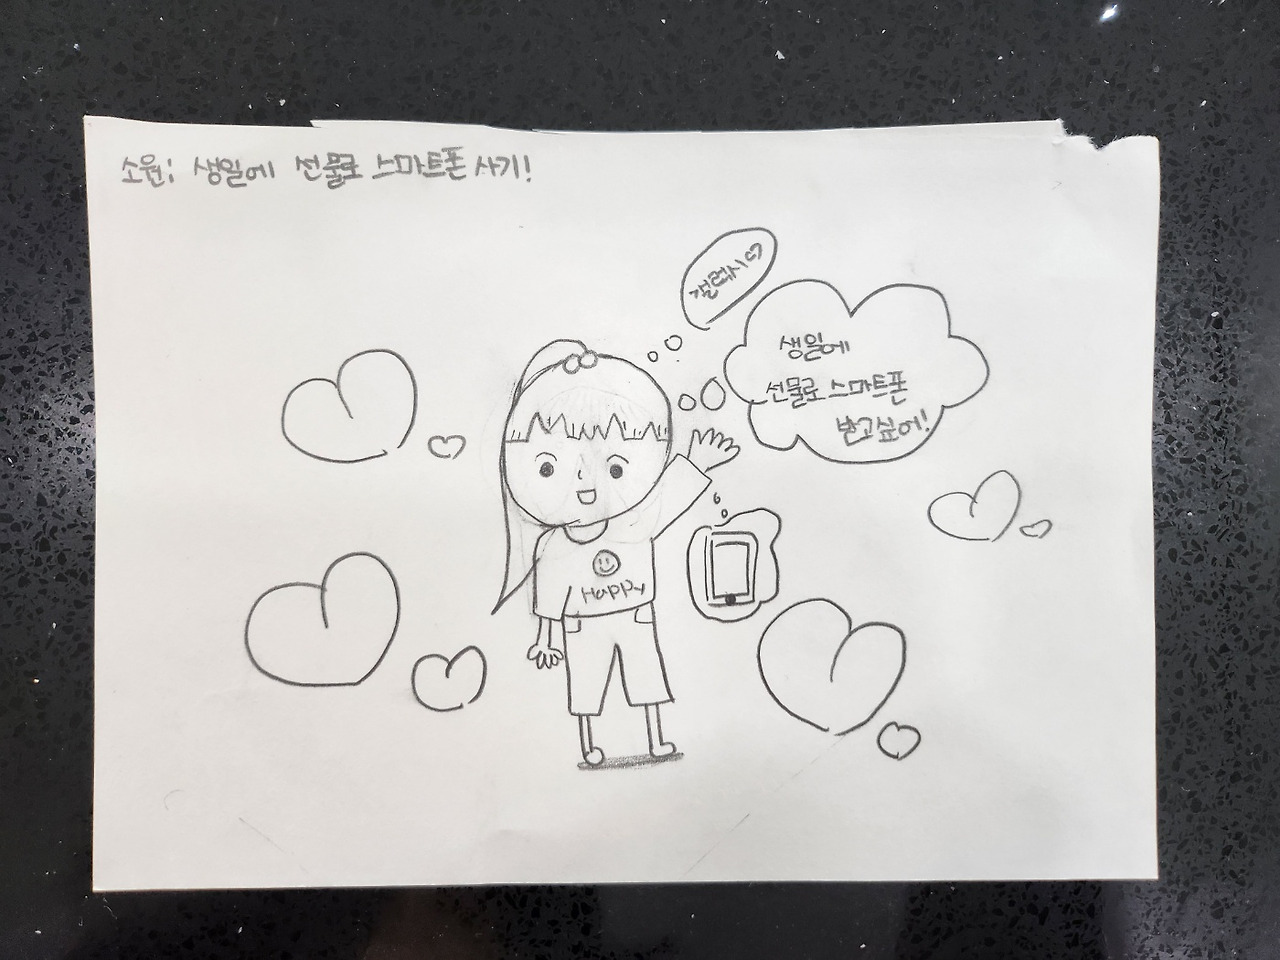 소원; 생일에 선물로 스마트폰 사기!
갤럭시♡
생일에
선물로 스마트폰
받고싶어!
Happy